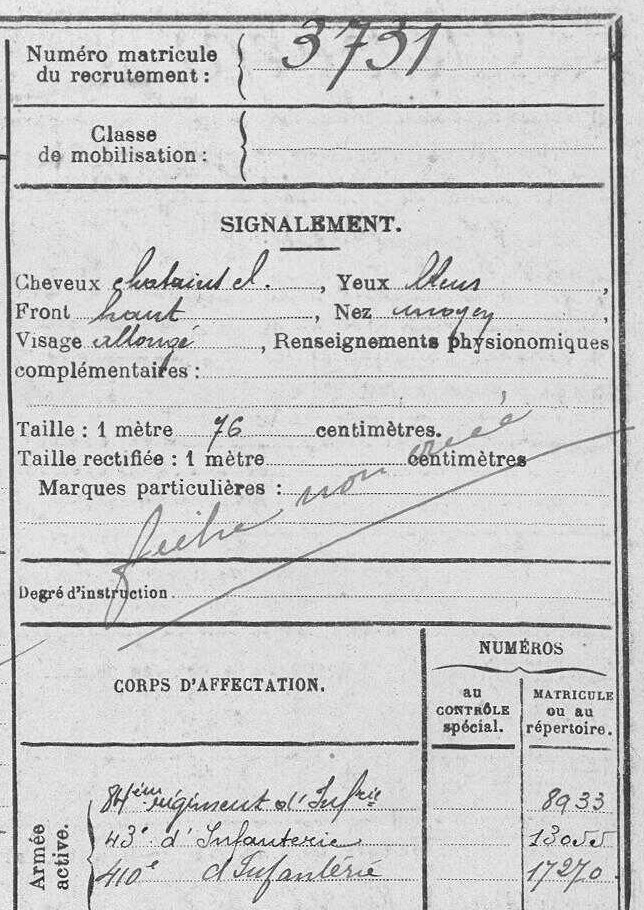 Numéro matricule
du recrutement : 3731
Classe
de mobilisation :
SIGNALEMENT.
Cheveux chatains cl. , Yeux bleus ,
Front haut , Nez moyen ,
Visage allongé , Renseignements physionomiques
complémentaires :
Taille : 1 mètre 76 centimètres.
Taille rectifiée : 1 mètre centimètres
Marques particulières :
fiche non créée
Degré d'instruction
CORPS D'AFFECTATION.
NUMÉROS
au
CONTRÔLE
spécial.
MATRICULE
ou au
répertoire.
Armée
active.
84ème régiment d'Infrie 8933
43e d'Infanterie 13055
410e d'Infanterie 17270